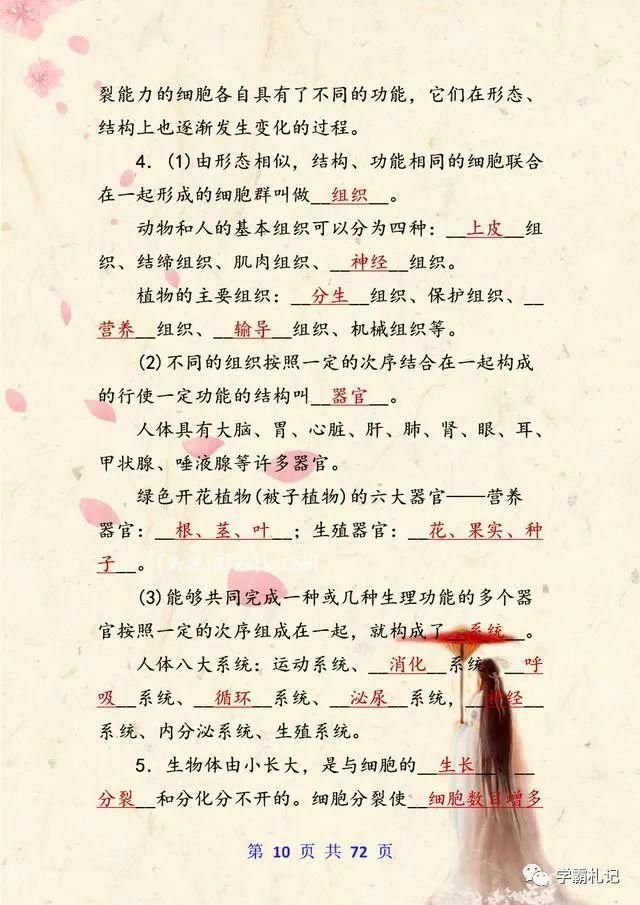 裂能力的细胞各自具有了不同的功能，它们在形态、
结构上也逐渐发生变化的过程。
4．(1)由形态相似，结构、功能相同的细胞联合
在一起形成的细胞群叫做__组织__。
动物和人的基本组织可以分为四种：__上皮__组
织、结缔组织、肌肉组织、__神经__组织。
植物的主要组织：__分生__组织、保护组织、__
营养__组织、__输导__组织、机械组织等。
(2)不同的组织按照一定的次序结合在一起构成
的行使一定功能的结构叫__器官__。
人体具有大脑、胃、心脏、肝、肺、肾、眼、耳、
甲状腺、唾液腺等许多器官。
绿色开花植物(被子植物)的六大器官——营养
器官：__根、茎、叶__；生殖器官：__花、果实、种
子__。
(3)能够共同完成一种或几种生理功能的多个器
官按照一定的次序组成在一起，就构成了__系统__。
人体八大系统：运动系统、__消化__系统、__呼
吸__系统、__循环__系统、__泌尿__系统，__神经__
系统、内分泌系统、生殖系统。
5．生物体由小长大，是与细胞的__生长__ __
分裂__和分化分不开的。细胞分裂使__细胞数目增多
第 10 页 共 72 页
学霸札记